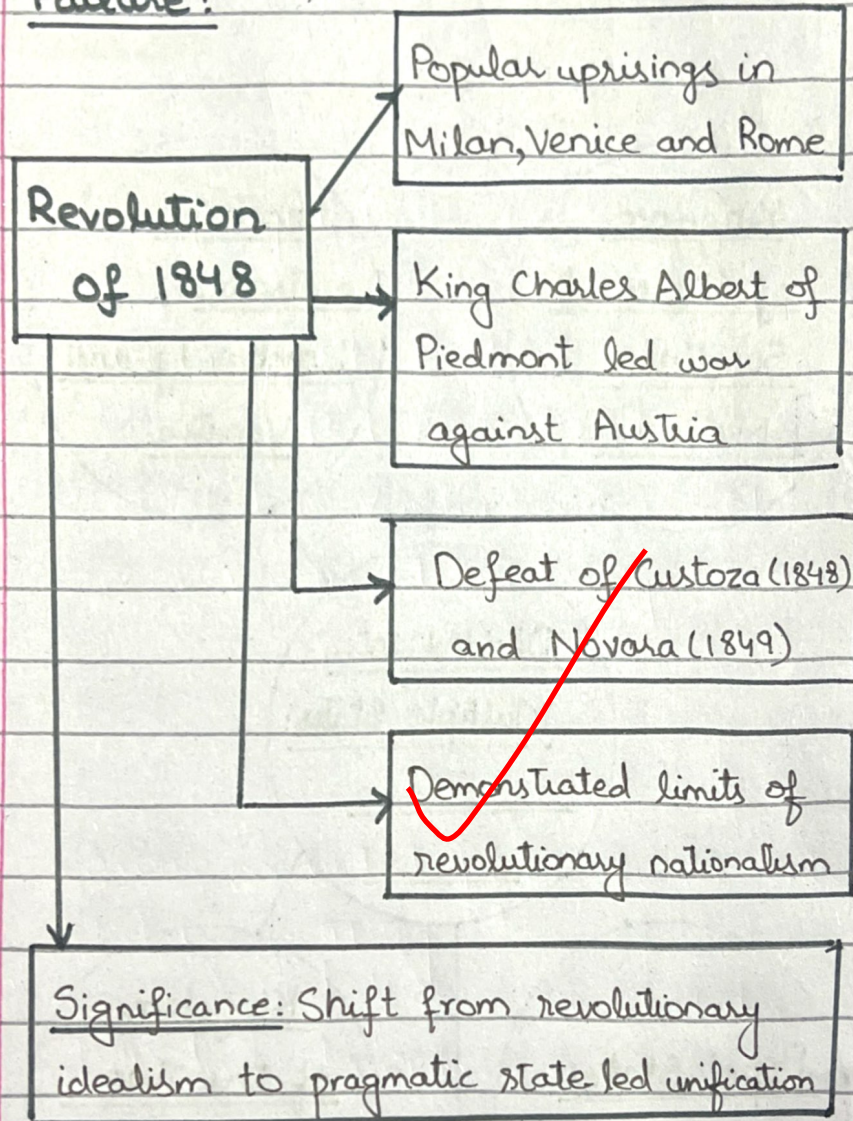 Failure:
Popular uprisings in
Milan, Venice and Rome
Revolution
of 1848
King Charles Albert of
Piedmont led war
against Austria
Defeat of Custoza (1848)
and Novara (1849)
Demonstrated limits of
revolutionary nationalism
Significance: Shift from revolutionary
idealism to pragmatic state led unification